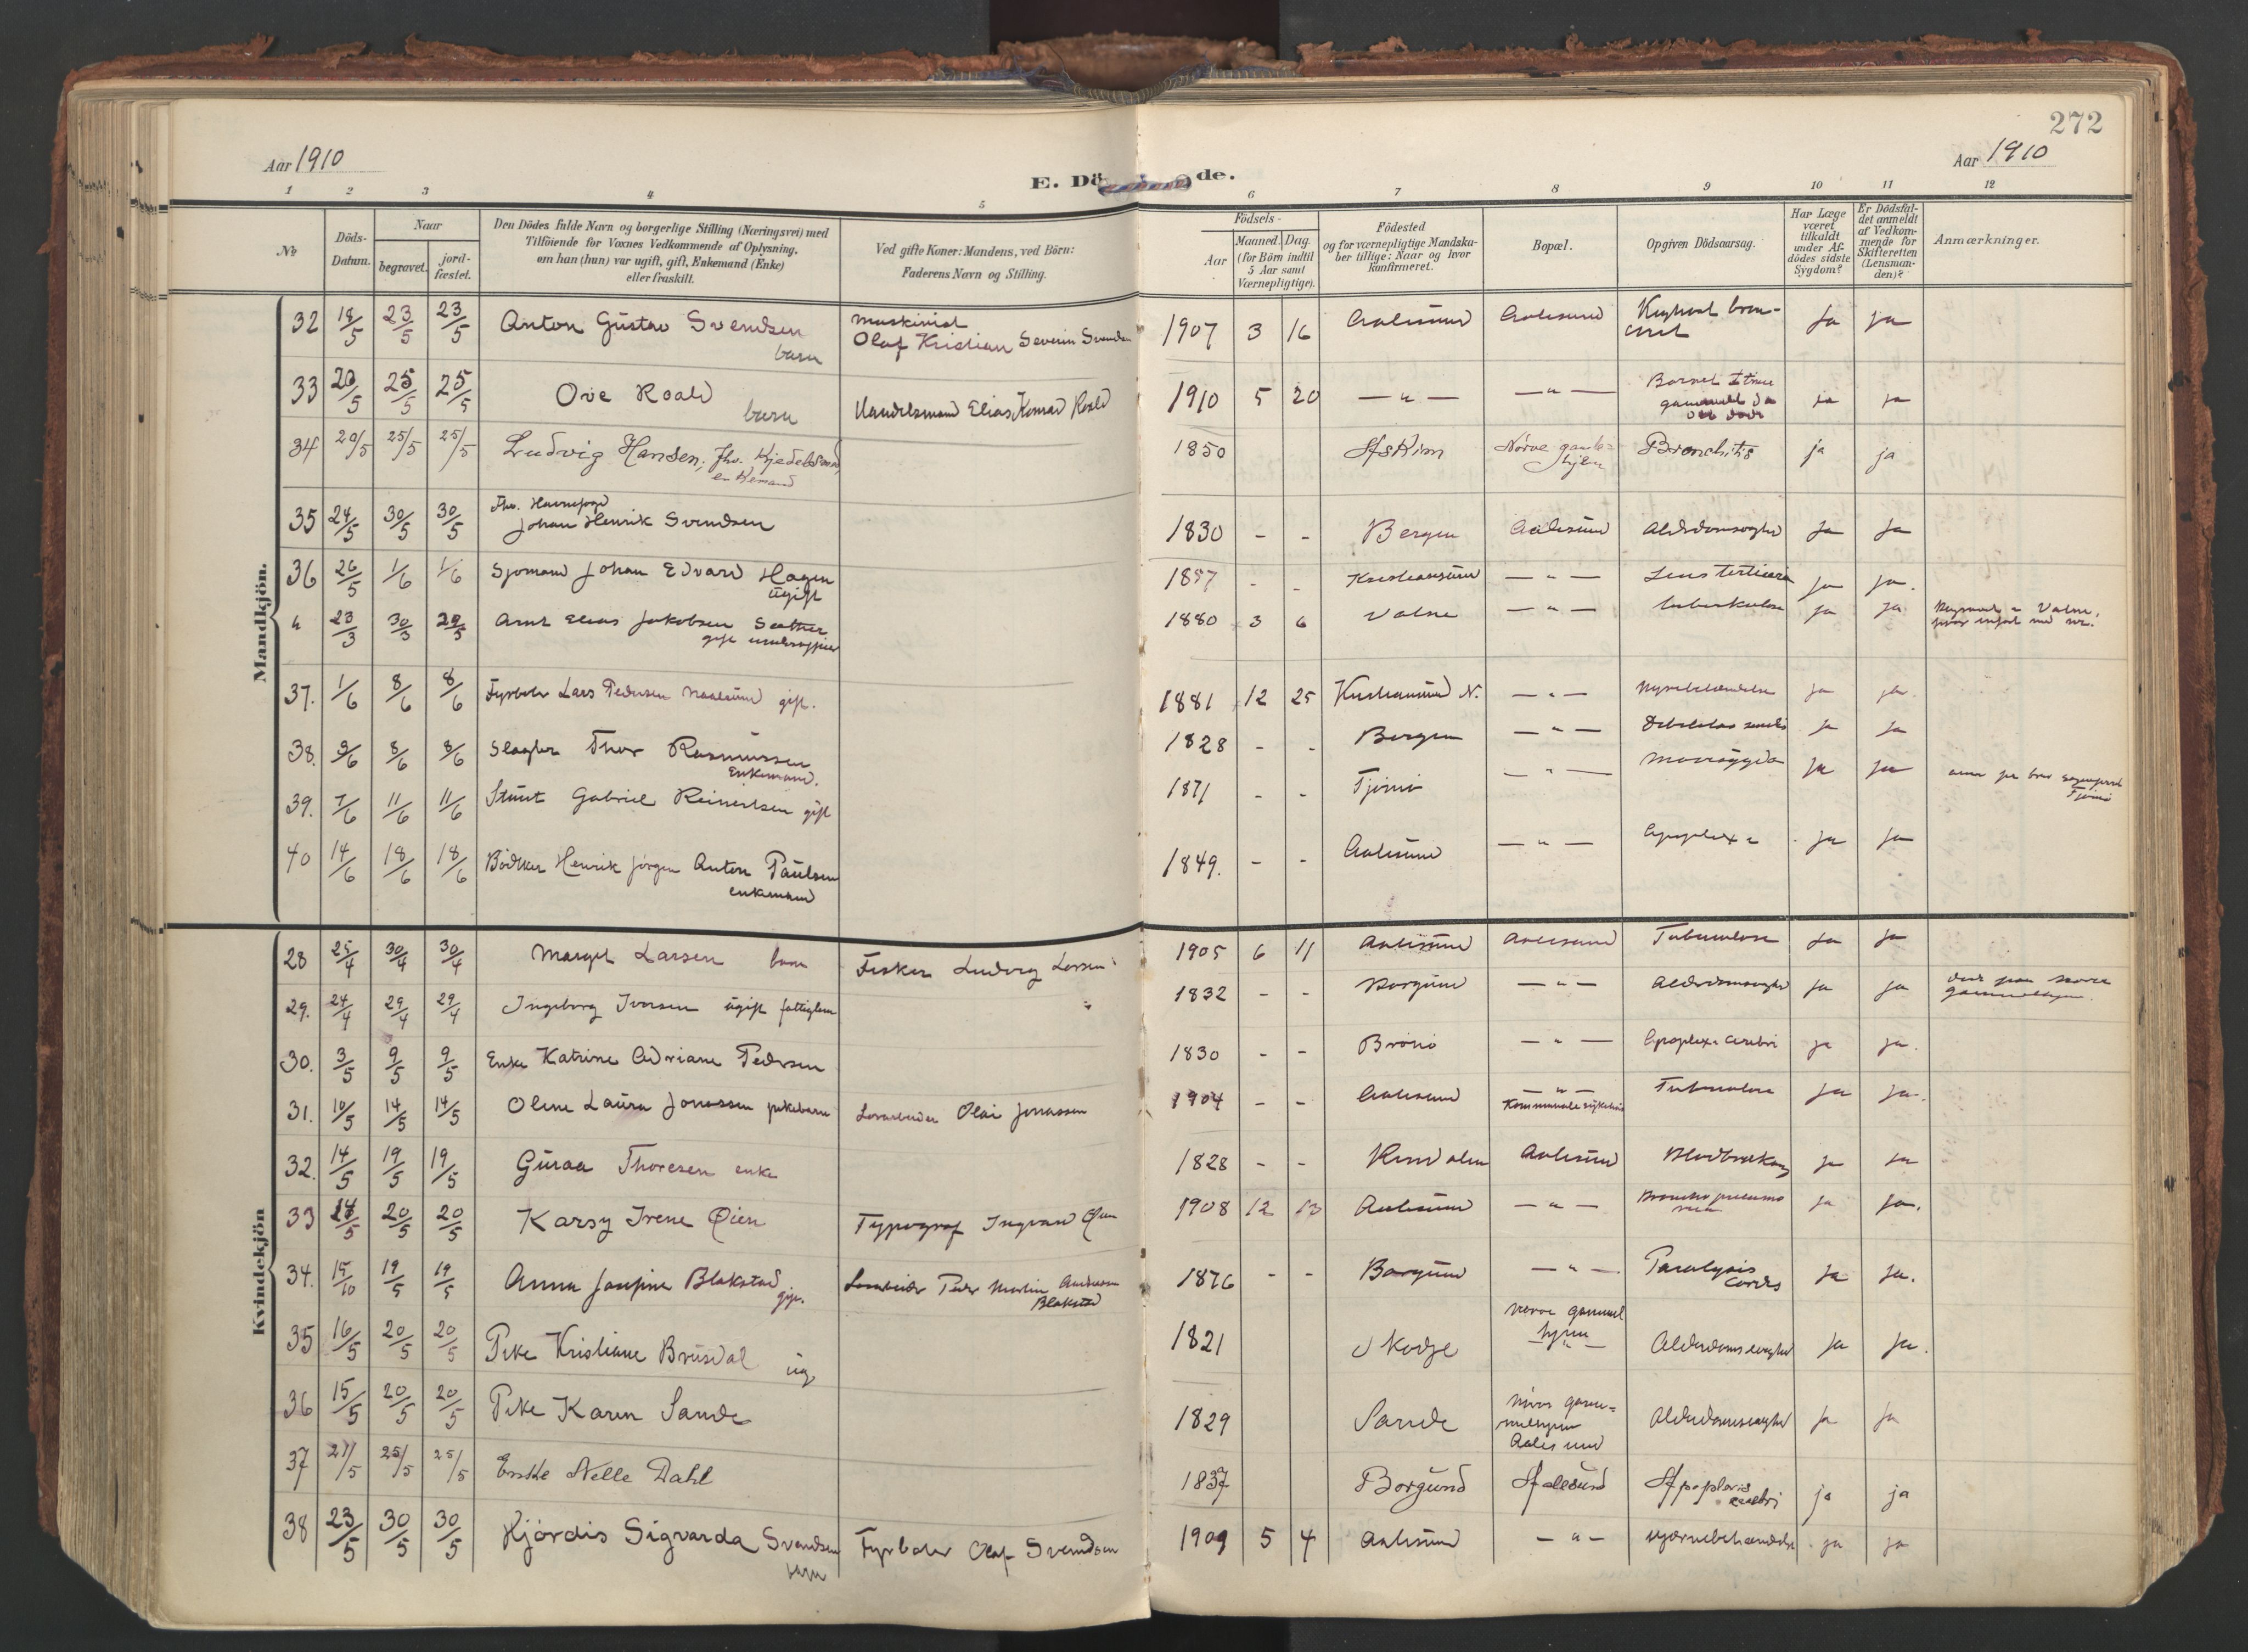 272
Aar 1910
Aar 1910
E. Dö de.
1 2 3 4 5 6 7 8 9 10 11 12
No
Döds-Datum.
Naar
begravet.
jord-fæstet.
Den Dödes fulde Navn og borgerlige Stilling (Næringsvei) med
Tilföiende for Voxnes Vedkommende af Oplysning.
om han (hun) var ugift, gift, Enkemand (Enke)
eller fraskilt.
Ved gifte Koner: Mandens, ved Börn:
Faderens Navn og Stilling.
Födsels-
Aar
Maaned. Dag.
(for Börn indtil
5 Aar samt
Værnepligtige).
Födested
og for værnepligtige Mandska-
ber tillige: Naar og hvor
konfirmeret.
Bopæl.
Opgiven Dödsaarsag.
Har Læge
været
tilkaldt
under Af-
dödes sidste
Sygdom?
Er Dödsfal-
det anmeldt
af Vedkom-
mende for
Skifteretten
(Lensman-
den)?
Anmærkninger.
Mandkjön.
32 18/5 23/5 23/5 Anton Gustav Svendsen barn Maskinist Olaf Kristian Severin Svendsen 1907 3 16 Aalesund Aalesund ja ja
33 20/5 25/5 25/5 Ove Roald barn Handelsmand Elias Konrad Roald 1910 5 20 — " — — " — Barnet 1 time gammelt da det döde ja ja
34 20/5 25/5 25/5 Ludvig Hansen, fhv. enkemand 1850 Askim Nörve gamle-hjem Bronchitis ja ja
35 24/5 30/5 30/5 Fhv. Havnefoged Johan Henrik Svendsen 1830 - - Bergen Aalesund Alderdomssvaghed ja ja
36 26/5 1/6 1/6 Sjömand Johan Edvard Hagen ugift 1857 - - Kristiansund — " — Lues tertiaria ja ja.
" 23/3 30/3 29/5 Arnt Elias Jakobsen Sæther gift 1880 3 6 Vatne — " — tuberkulose ja ja
37. 1/6 8/6 8/6 Fyrböter Lars Pedersen gift. 1881 12 25 Kristiansund N. — " — Nyrebetændelse ja ja.
38. 3/6 8/6 8/6 Slagter Thor Rasmussen Enkemand. 1828 - - Bergen — " — Debilitas senilis ja ja
39. 7/6 11/6 11/6 Stuert Gabriel Reinertsen gift 1871 - - Tjömö — " — ja ja Tjömö
40 14/6 18/6 18/6 Bödker Henrik Jörgen Anton Paulsen enkemand 1849. - - Aalesund — " — Apoplexia ja ja
Kvindekjön
28 25/4 30/4 30/4 Margit Larsen barn Fisker Ludvig Larsen 1905 6 11 Aalesund Aalesund Tuberculose ja ja
29. 24/4 29/4 29/4 Ingeborg Iversen ugift fattiglem 1832 - - Borgund — " — Alderdomssvaghed ja ja död paa Nörve gamlehjem.
30. 3/5 9/5 9/5 Enke Katrine Adriane Pedersen 1830 - - Brönö — " — Apoplexia cerebri ja ja.
31. 10/5 14/5 14/5 Oline Laura Jonassen pikebarn Losarbeider Olai Jonassen 1904 - - Aalesund — " — Kommunale sykehus Tuberculose ja ja.
32. 14/5 19/5 19/5 Guraa Thoresen enke 1828 - - Aalesund ja ja
33 14/5 20/5 20/5 Karsy Irene Øien Typograf Ingvald Øien 1908 12 13 Aalesund — " — Bronchopneumonia ja ja.
34. 15/10 19/5 19/5 Anna Josefine Blakstad gift. Losarbeider Peder Martin Andreas Blakstad 1876 - - Borgund — " — Paralysis cordis ja ja.
35 16/5 20/5 20/5 Pike Kristiane Brusdal ug. 1821 Skodje Nörve gammelhjem — " — Alderdomssvaghed ja ja.
36 15/5 20/5 20/5 Pike Karen Sande 1829 Sande Nörve gammelhjem Aalesund Alderdomssvaghed ja ja
37 21/5 25/5 25/5 Enke Nelle Dahl 1837 Borgund Aalesund Apoplexia cerebri ja ja
38 23/5 30/5 30/5 Hjördis Sigvarda Svendsen barn Fyrböter Olaf Svendsen 1909 5 4 Aalesund — " — Hjernebetændelse ja ja